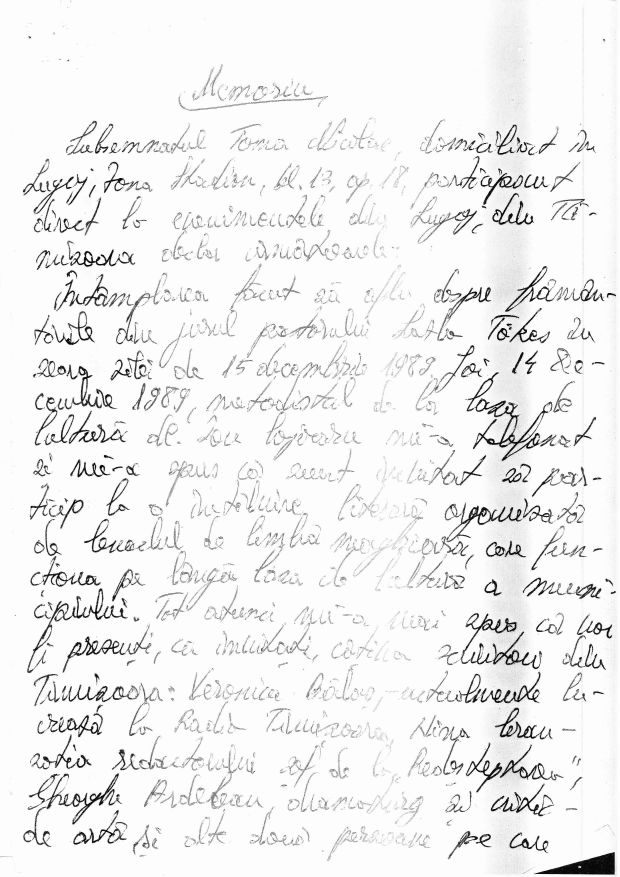 Memoriu
Subsemnatul Toma Nicolae, domiciliat în
Lugoj, Zona Stadion, bl. 13, ap. 18, participant
direct la evenimentele din Lugoj, din Ti-
mișoara declar următoarele:
Întâmplarea făcut să aflu despre frămân-
tările din jurul pastorului Laszlo Tökes în
seara zilei de 15 decembrie 1989. Joi, 14 de-
cembrie 1989, metodistul de la Casa de
Cultură dl. Ion mi-a telefonat
și mi-a spus că sunt invitat să par-
ticip la o întâlnire literară organizată
de cenaclul de limbă maghiară, care func-
ționa pe lângă Casa de Cultură a muni-
cipiului. Tot atunci mi-a mai spus că vor
fi prezenți, ca invitați, câțiva scriitori din
Timișoara: Veronica Balaj, - actualmente lu-
crează la Radio Timișoara, Nina Ceran-
soția redactorului șef de la "Redeșteptarea",
Gheorghe Ardelean, dramaturg și critic -
de artă, și alte două persoane pe care